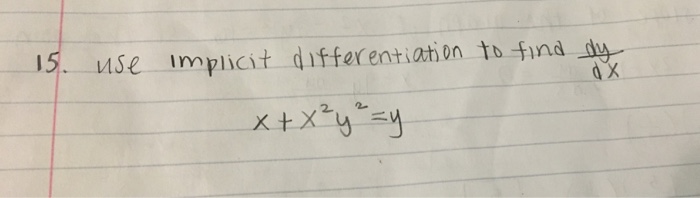 15. use implicit differentiation to find dy/dx
x + x²y² = y